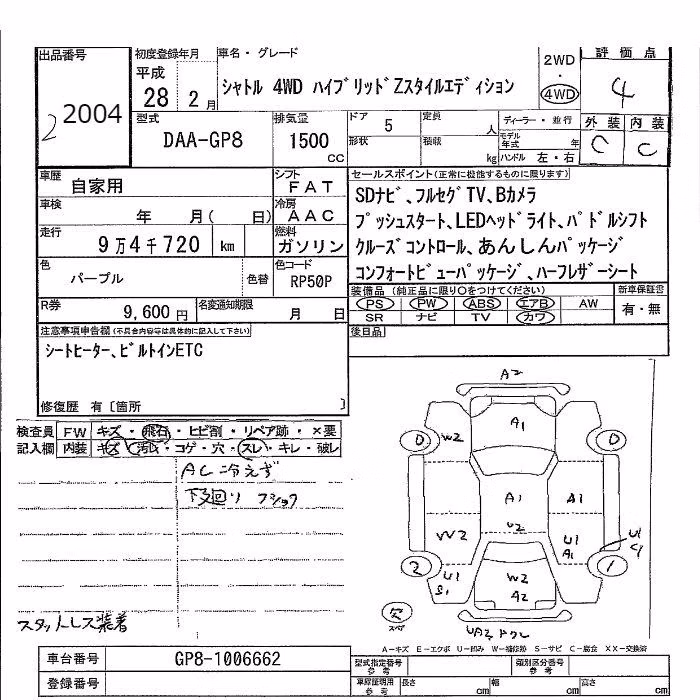 出品番号 初度登録年月 車名・グレード 2WD 評価点
平成 ・
28 2月 シャトル 4WD ハイブリッドZスタイルエディション 4WD 4
2 2004
型式 排気量 ドア 5 定員 人 ディーラー・並行 外装 内装
DAA-GP8 1500 CC 形状 積載 kg モデル年式 年 C C
ハンドル 左・右
車歴 自家用 シフト FAT セールスポイント(正常に機能するものに限ります)
車検 年 月( 日) 冷房 AAC SDナビ、フルセグTV、Bカメラ
プッシュスタート、LEDヘッドライト、パドルシフト
走行 9万4千720 km 燃料 ガソリン クルーズコントロール、あんしんパッケージ
色 パープル 色替 色コード RP50P コンフォートビューパッケージ、ハーフレザーシート
R券 9,600円 名変通知期限 月 日 装備品 (純正品に限り○をつけてください) 新車保証書
PS PW ABS エアB AW 有・無
SR ナビ TV カワ
注意事項申告欄(不具合内容等は具体的に記入して下さい) 後日品
シートヒーター、ビルトインETC
修復歴 有〔箇所 〕
検査員 FW キズ・飛石・ヒビ割・リペア跡・×要
記入欄 内装 キズ・汚れ・コゲ・穴・スレ・キレ・破レ
AC冷えず
下回り
スタットレス装着
A2
A1
0 W2 0
A1 A1
W2 U2 U1 A1 U1
2 U1 S1 W2 A2 1
UA2 ドワレ
A-キズ E-エクボ U-凹み W-補修跡 S-サビ C-腐食 XX-交換済
車台番号 GP8-1006662 型式指定番号 参考 類別区分番号 参考
登録番号 車庫証明用 参考 長さ cm 幅 cm 高さ cm